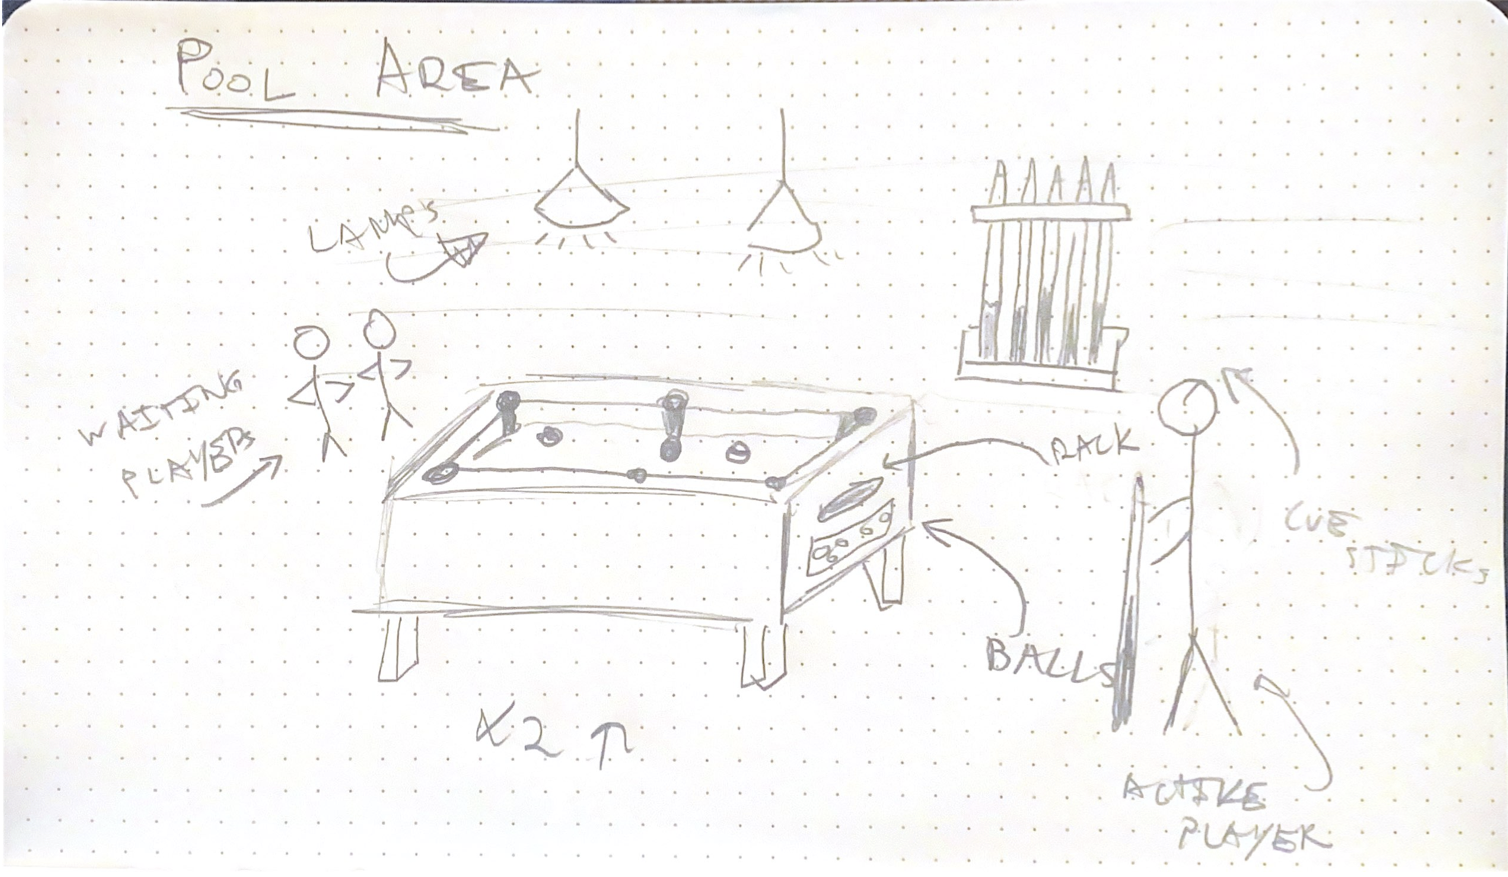 POOL AREA
LAMPS
WAITING
PLAYERS
RACK
CUE
STICKS
BALLS
x2 ↑
ACTIVE
PLAYER